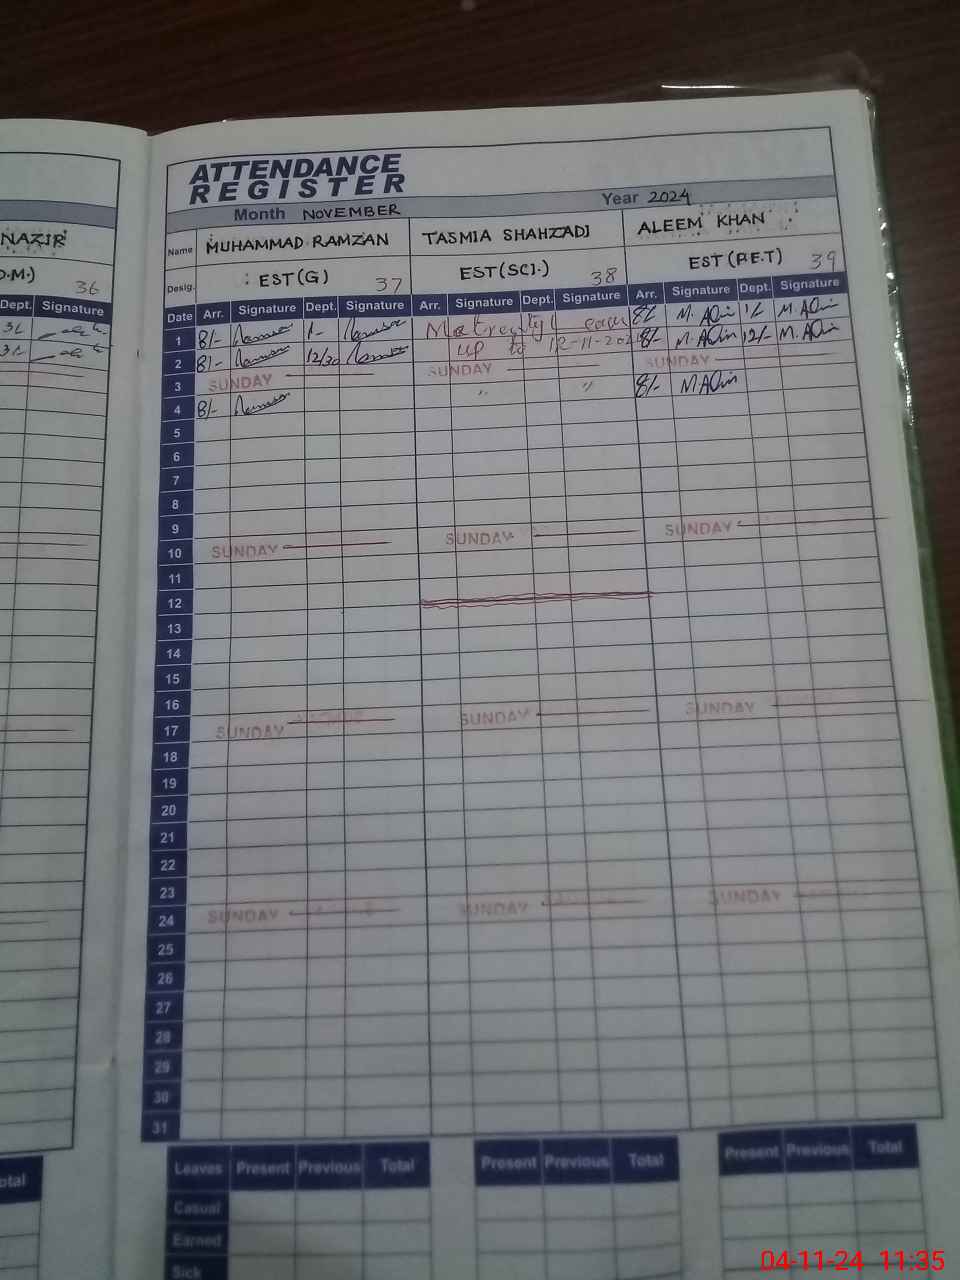 ATTENDANCE
REGISTER
Month NOVEMBER Year 2024
NAZIR
Name MUHAMMAD RAMZAN TASMIA SHAHZADI ALEEM KHAN
D.M.) 36
Desig. EST(G) 37 EST(SCI.) 38 EST(P.E.T) 39
Dept. Signature
Date Arr. Signature Dept. Signature Arr. Signature Dept. Signature Arr. Signature Dept. Signature
1 8/- 1- 8/- M. 1/- M.
2 8/- 12/30 up to 12-11-202 8/- M. 12/- M.
3 SUNDAY SUNDAY SUNDAY
4 8/- " " 8/- M.
5
6
7
8
9
10 SUNDAY SUNDAY SUNDAY
11
12
13
14
15
16
17 SUNDAY SUNDAY SUNDAY
18
19
20
21
22
23
24 SUNDAY SUNDAY SUNDAY
25
26
27
28
29
30
31
otal
Leaves Present Previous Total Present Previous Total Present Previous Total
Casual
Earned
Sick
04-11-24 11:35